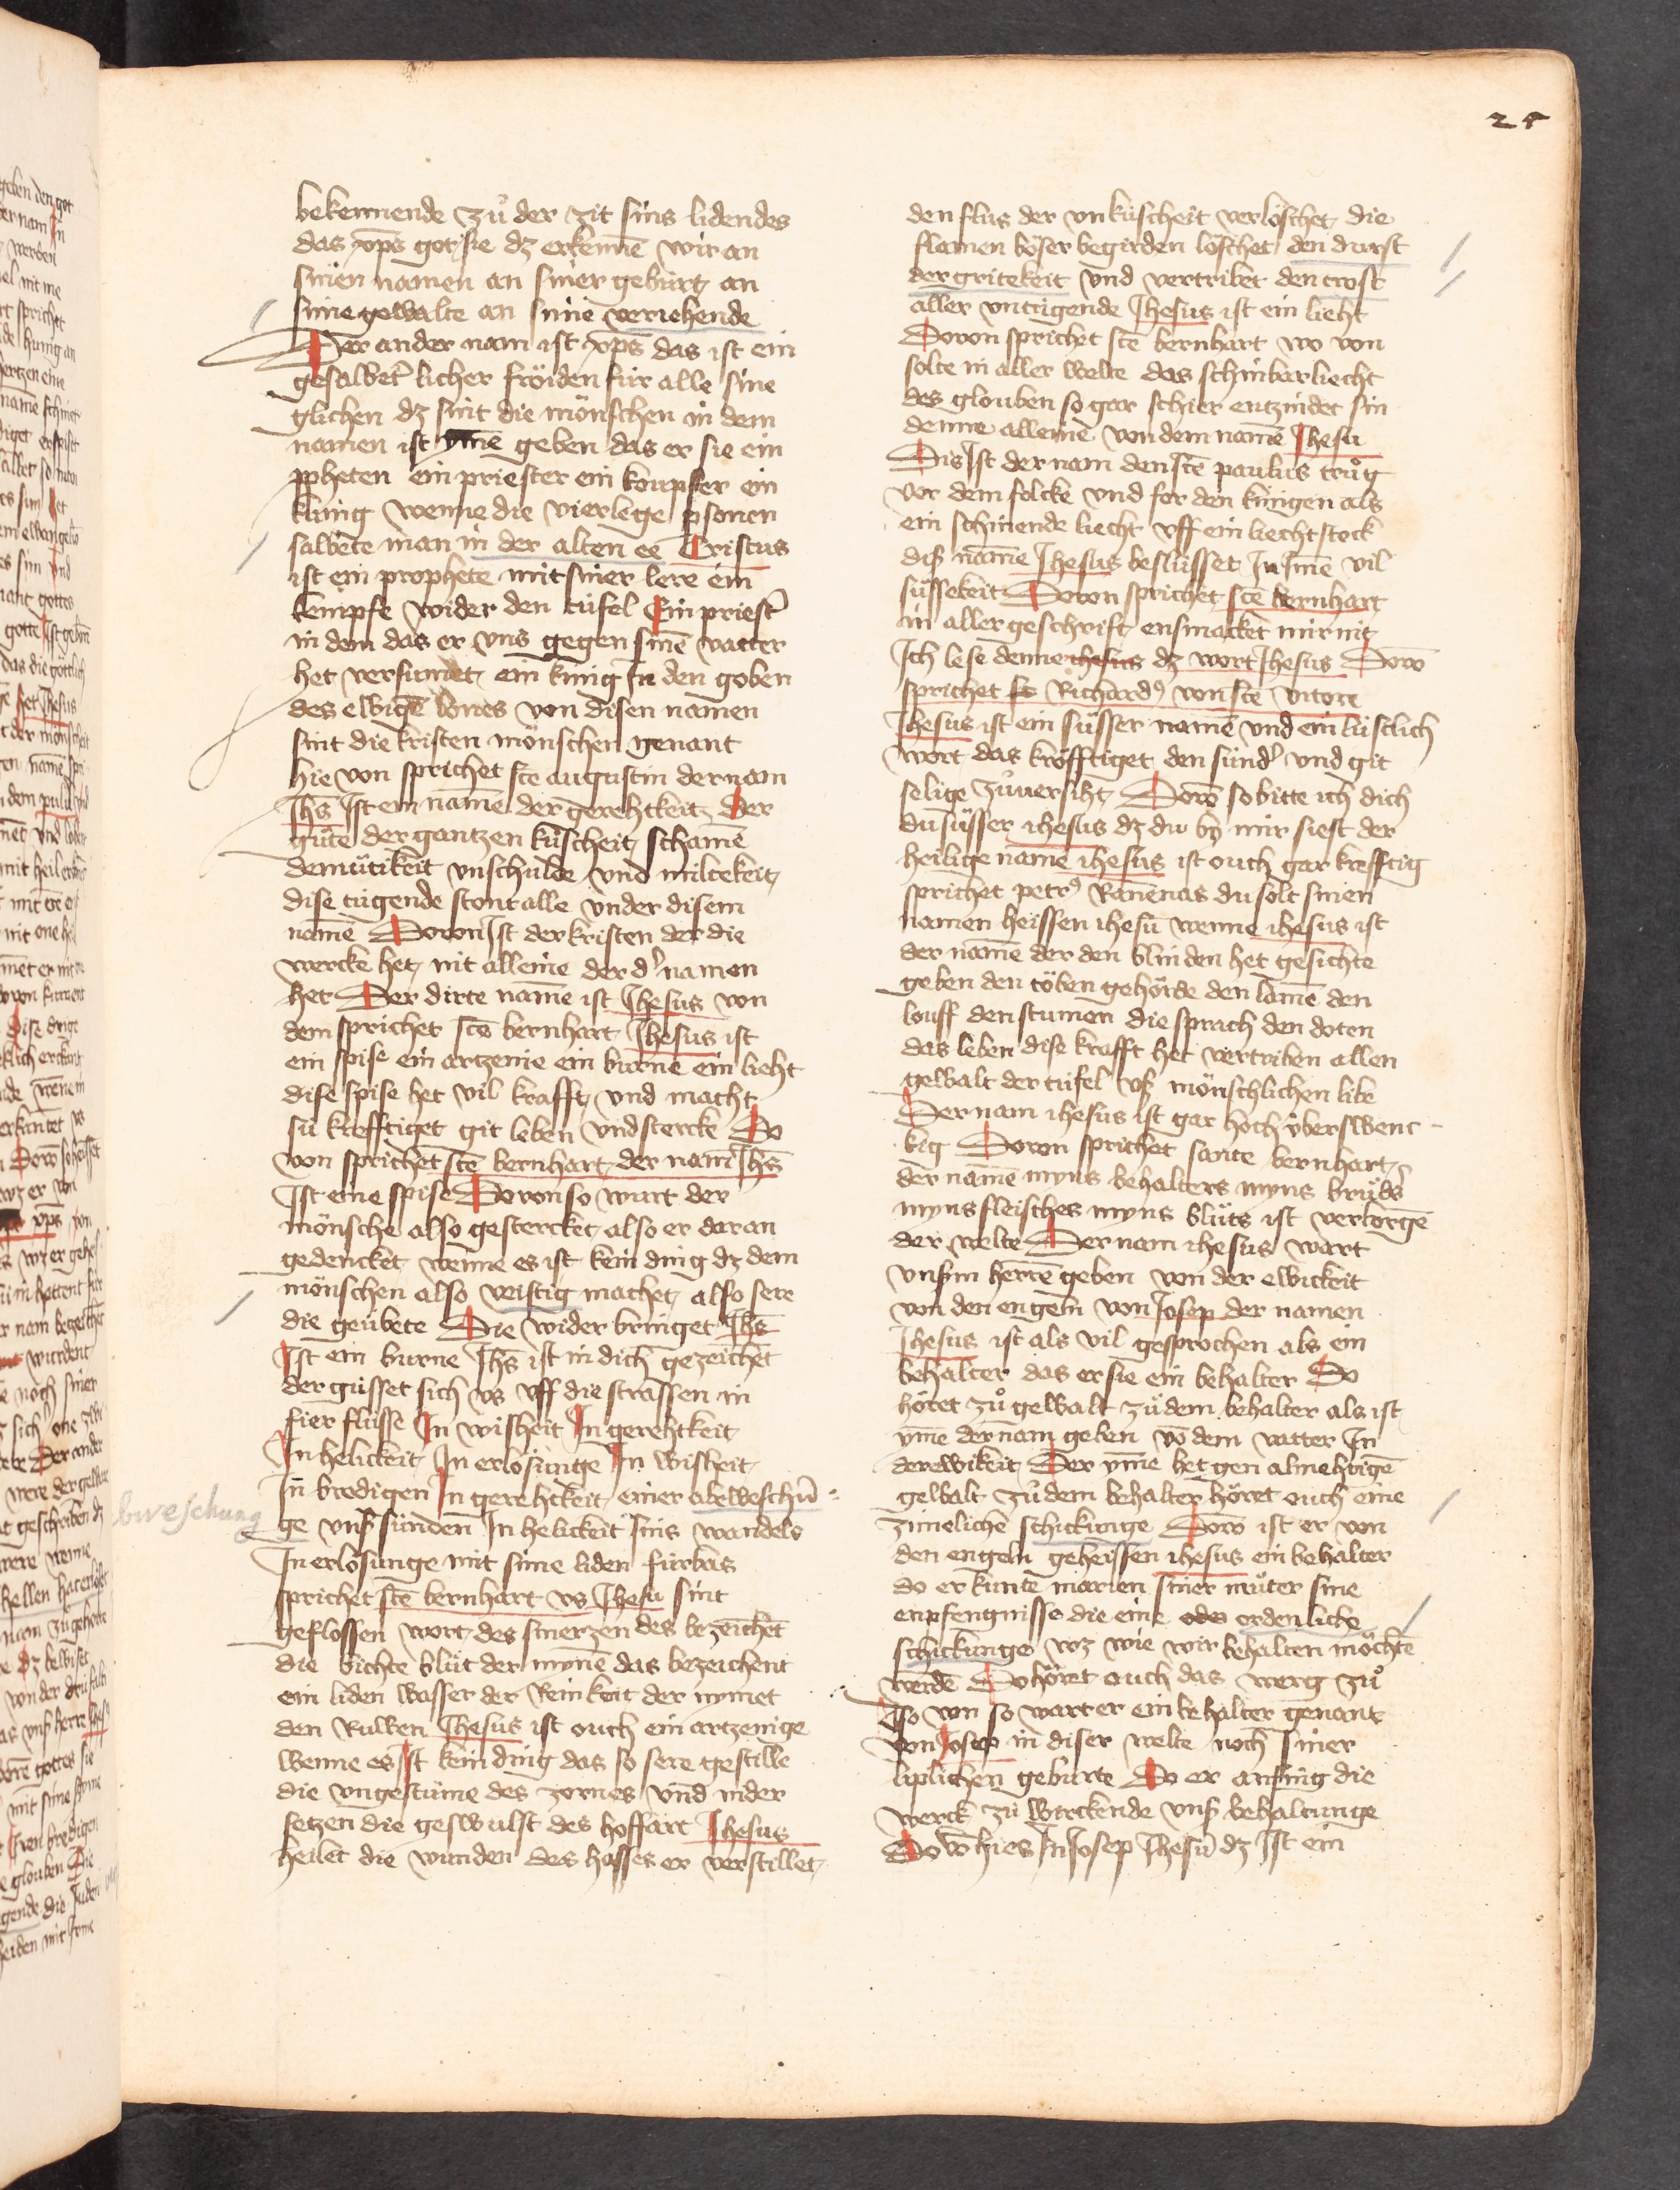 25
bekennende zuͦ der zit sins lidendes
das xp̄s got sie dz erkenne wir an
sinen namen an siner geburt an
sime gewalte an sime veriehende
Der ander nam ist xp̄s das ist ein
gesalbet' licher fröiden für alle sine
glichen dz sint die mönschen in dem
namen ist ymē geben das er sie ein
ppheten ein priester ein kempfer ein
kúnig wenne die vierlege psonen
salbete man in der alten ee Cristus
ist ein prophete mit siner lere ein
kempfe wider den túfel Ein priest'
in dem das er vns gegen sinē vatter
het versunet ein kúnig In den goben
des ewigē lones von disen namen
sint die kristen mönschen genant
hie von sprichet stē augustin der nam
Ihs̄ Ist ein namē der gerehtkeit der
gúte der gantzen kúscheit schamē
demútikeit vnschulde vnd miltekeit
dise tugende stont alle vnder disem
namē Dovon Ist der kristen der die
wercke het nit alleine der d' namen
het Der dirte namē ist Ihesus von
dem sprichet stē bernhart Ihesus ist
ein spise ein artzenie ein burne ein lieht
dise spise het vil krafft vnd macht
sú krefftiget git leben vnd stercke Do
von sprichet stē bernhart der nam Ihs̄
Ist eine spise Dovon so wurt der
mönsche also gestercket also er daran
gedencket wenne es ist kein ding dz dem
mönschen also veistig machet also sere
die geúbete Die wider bringet Ihs̄
Ist ein burne Ihs̄ ist in dich gezeichet
der gússet sich vs vff die strassen in
fier flússe In wisheit In gerehtkeit
In helickeit In erlösunge In wisheit
In bredigen In gerehtkeit einer abeweschū
bweschung
ge vnß súnden In helickeit sins wandels
In erlösunge mit sime liden fúrbas
sprichet stē bernhart vs Ihesu sint
geflossen wort des smerzen des bezeichet
die bichte blút der mynē das bezeichent
ein liden wasser der Reinkeit der nymet
den Ruwen Ihesus ist ouch ein artzenige
wenne es Ist kein ding das so sere gestille
die vngestúme des zornes vnd nider
setzen die geswulst des hoffart Ihesus
heilet die wunden des hasses er verstillet
den flus der vnkúscheit verlöschet die
flamen böser begirden löschet den durst
der gritekeit vnd vertribet den trost
aller vntugende Ihesus ist ein lieht
Dovon sprichet stē bernhart wo von
solte in aller welte das schinbar liecht
des glouben so gar schier entzúndet sin
denne alleine von dem namē Ihesu
Dis Ist der nam den stē paulus truͦg
vor dem folcke vnd for den kúnigen als
ein schinende liecht vff ein liechtstock
diß namē Ihesus beslússet In Imē vil
sússekeit Dovon sprichet stē bernhart
in aller geschrift ensmacket mir nit
Ich lese denne ihesus dz wort Ihesus Dovō
sprichet st Richard' von stē vitore
Ihesus ist ein sússer namē vnd ein lústlich
wort das kröfftiget den súnd' vnd git
selige zuͦversiht Dovō so bitte ich dich
du sússer ihesus dz du by mir siest der
heilige namē ihesus ist ouch gar krefftig
sprichet petr' Ranēnas du solt sinen
namen heissen ihesū wenne ihesus ist
der namē der den blinden het gesichte
geben den töben gehörde den lamē den
louff den stumen die sprach den doten
das leben dise krafft het vertriben allen
gewalt der túfel vß mönschlichen libe
Der nam ihesus ist gar hoch úberswenc
kig Dovon sprichet sante bernhart
der namē myns behalters myns bruͦd's
myns fleisches myns bluͦts ist verborgē
der welte Der nam ihesus wart
vnsim herrē geben von der ewickeit
von den engeln von Josep der namen
Ihesus ist als vil gesprochen als ein
behalter das er sie ein behalter Do
höret zuͦ gewalt zuͦ dem behalter als ist
ymē der nam geben vō dem vatter In
der ewikeit Der ymē het gen almehtigē
gewalt zuͦ dem behalter höret ouch eine
zimeliche schickunge Dovō ist er von
den engeln geheissen ihesus ein behalter
do er kunte marien siner muͦter sine
enpfengnisse die eine odes ordenliche
schickunge wz wie wir behalten möchtē
werdē Do höret ouch das werg zuͦ
Do von so wart er ein behalter genant
von Josep in diser welte noch siner
liplichen geburte Do er anfing die
werck zuͦ wirckende vnß behaltunge
Dovō hies In Josep Ihesū dz Ist ein